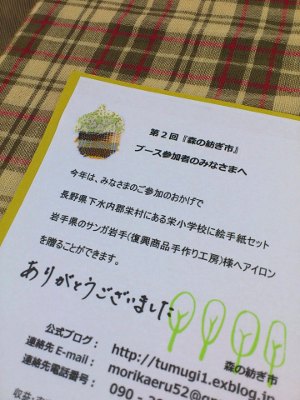 第2回『森の紡ぎ市』
ブース参加者のみなさまへ
今年は、みなさまのご参加のおかげで
長野県下水内郡栄村にある栄小学校に絵手紙セット
岩手県のサンガ岩手(復興商品手作り工房)様へアイロン
を贈ることができます。
ありがとうございました
森の紡ぎ市
公式ブログ： http://tumugi1.exblog.jp
連絡先 E-mail： morikaeru52@
連絡先電話番号： 090 -